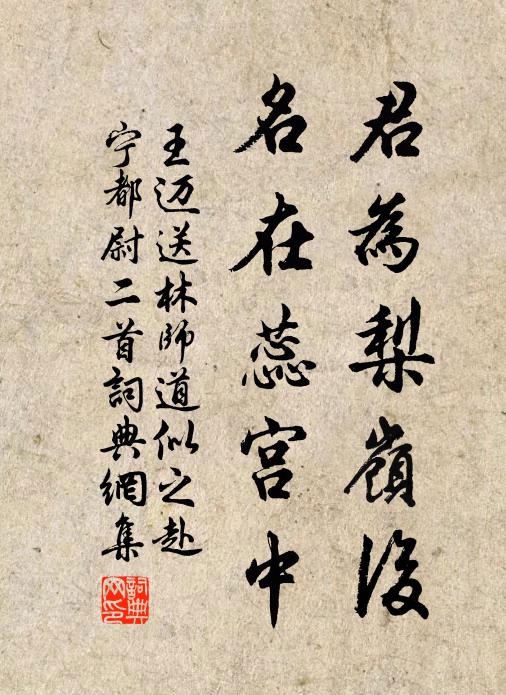 君為梨嶺後
名在蕊宫中
王迈送林師道似之赴
宁都尉二首詞典網集
詞典网印